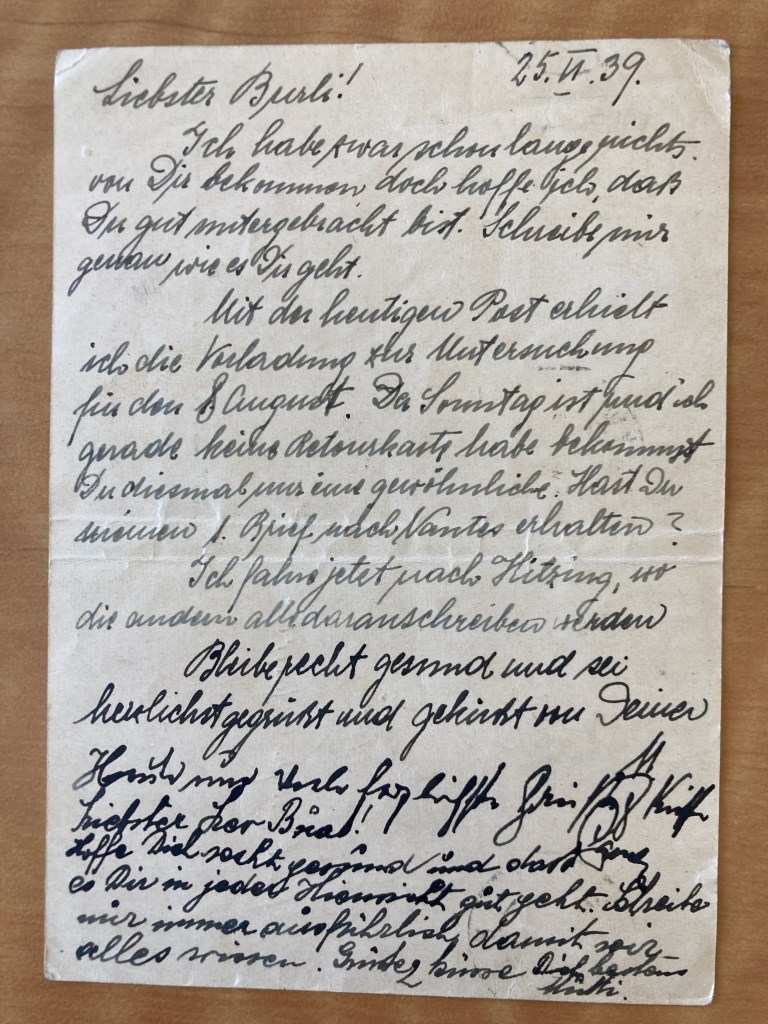 25.VI.39.
Liebster Burli!
Ich habe zwar schon lange nichts
von Dir bekommen doch hoffe ich, daß
Du gut untergebracht bist. Schreibe mir
genau wie es Dir geht.
Mit der heutigen Post erhielt
ich die Vorladung zur Untersuchung
für den 8 August. Da Sonntag ist und ich
gerade keine Retourkarte habe bekommst
Du diesmal nur eine gewöhnliche. Hast Du
meinen 1. Brief nach Nantes erhalten?
Ich fahre jetzt nach Hitzing, wo
die andern alle daranschreiben werden
Bleibe recht gesund und sei
herzlichst gegrüßt und geküsst von Deiner
und
Liebster
Hoffe Dich recht gesund und dass
es Dir in jeder Hinsicht gut geht. Schreibe
mir immer ausführlich, damit wir
alles wissen. Grüße küsse Dich bestens
Mutti.